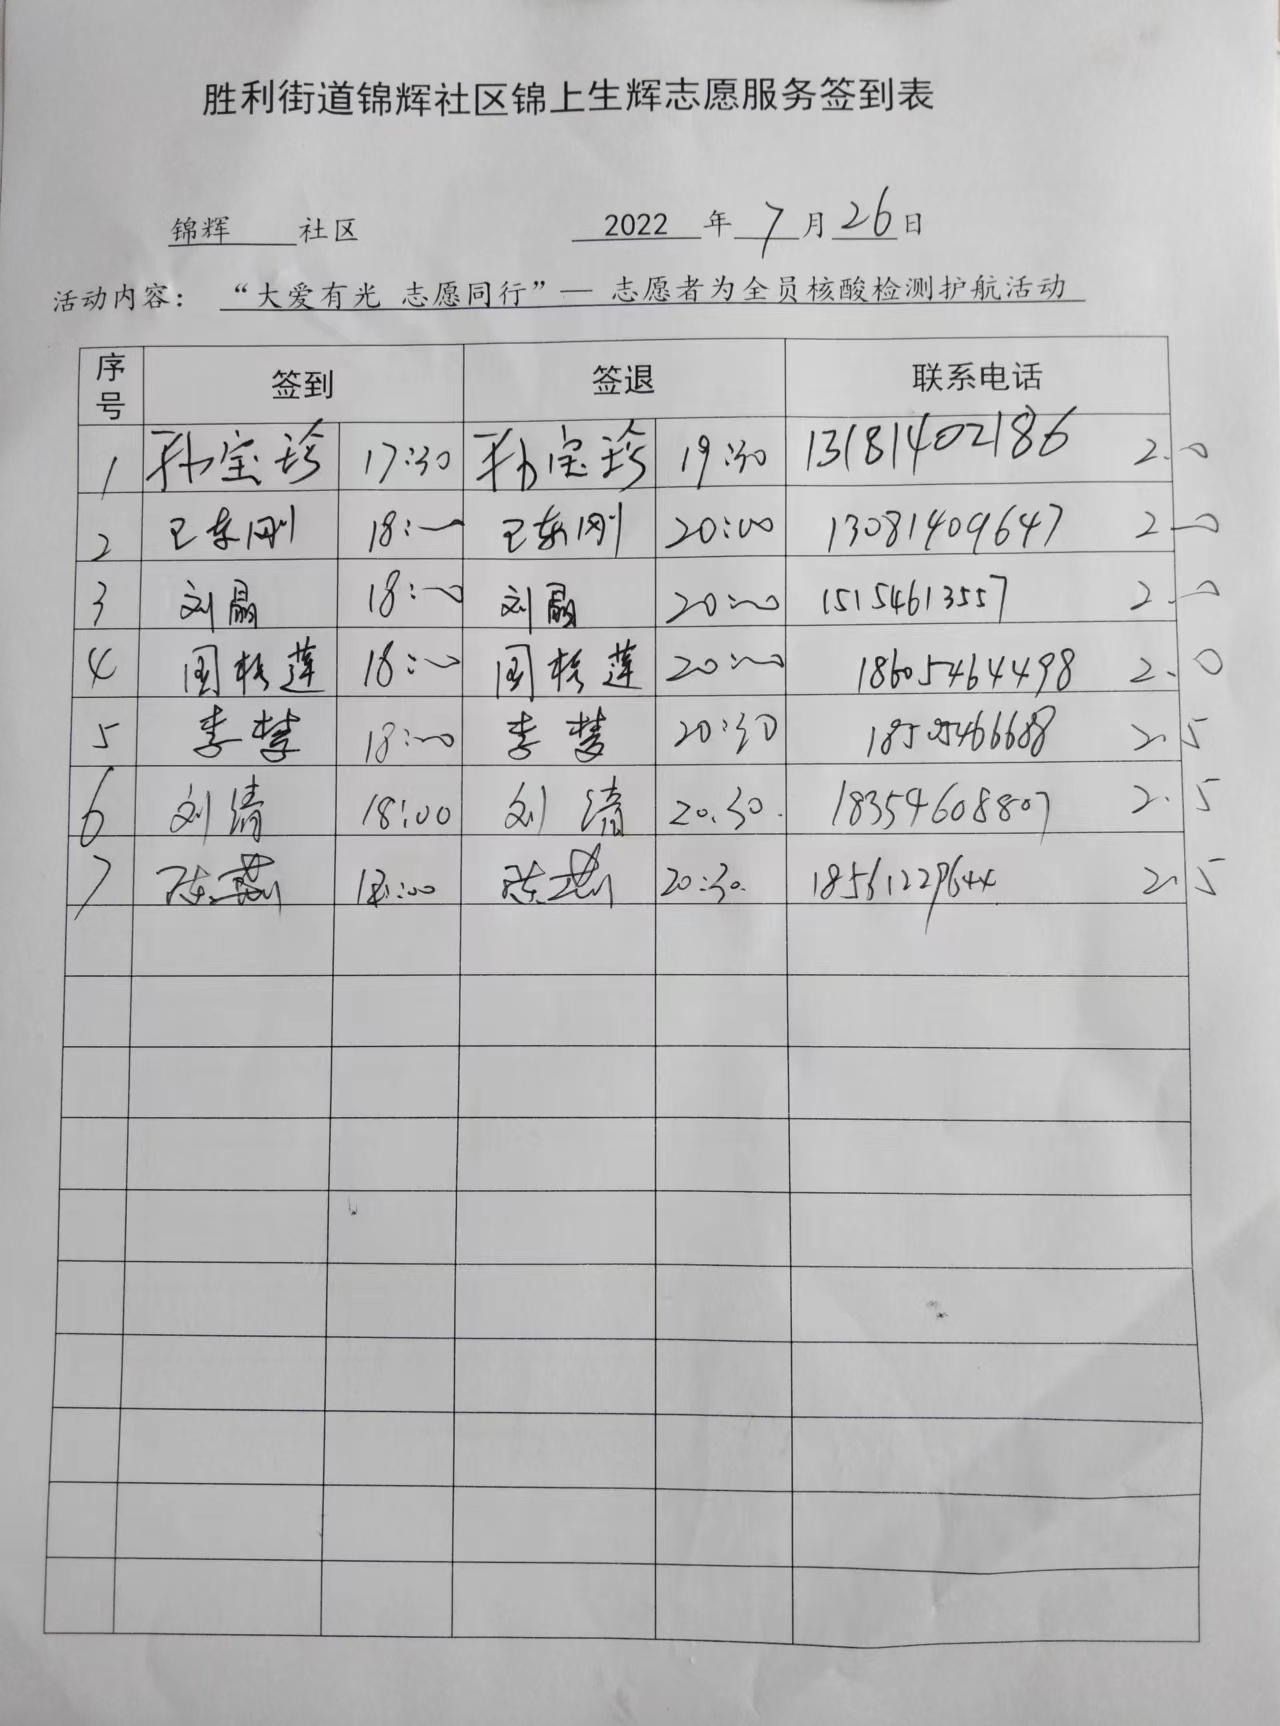 胜利街道锦辉社区锦上生辉志愿服务签到表
锦辉 社区 2022 年 7 月 26 日
活动内容： “大爱有光 志愿同行”— 志愿者为全员核酸检测护航活动
序号 签到 签退 联系电话
1 孙宝珍 17:30 孙宝珍 19:30 13181402186 2.0
2 王东刚 18:00 王东刚 20:00 13081409647 2.0
3 刘 18:00 刘 20:00 15154613557 2.0
4 国桂莲 18:00 国桂莲 20:00 18605464498 2.0
5 李梦 18:00 李梦 20:30 2.5
6 刘清 18:00 刘清 20.30. 18354608807 2.5
7 陈燕 18:00 陈燕 20:30. 18561229644 2.5